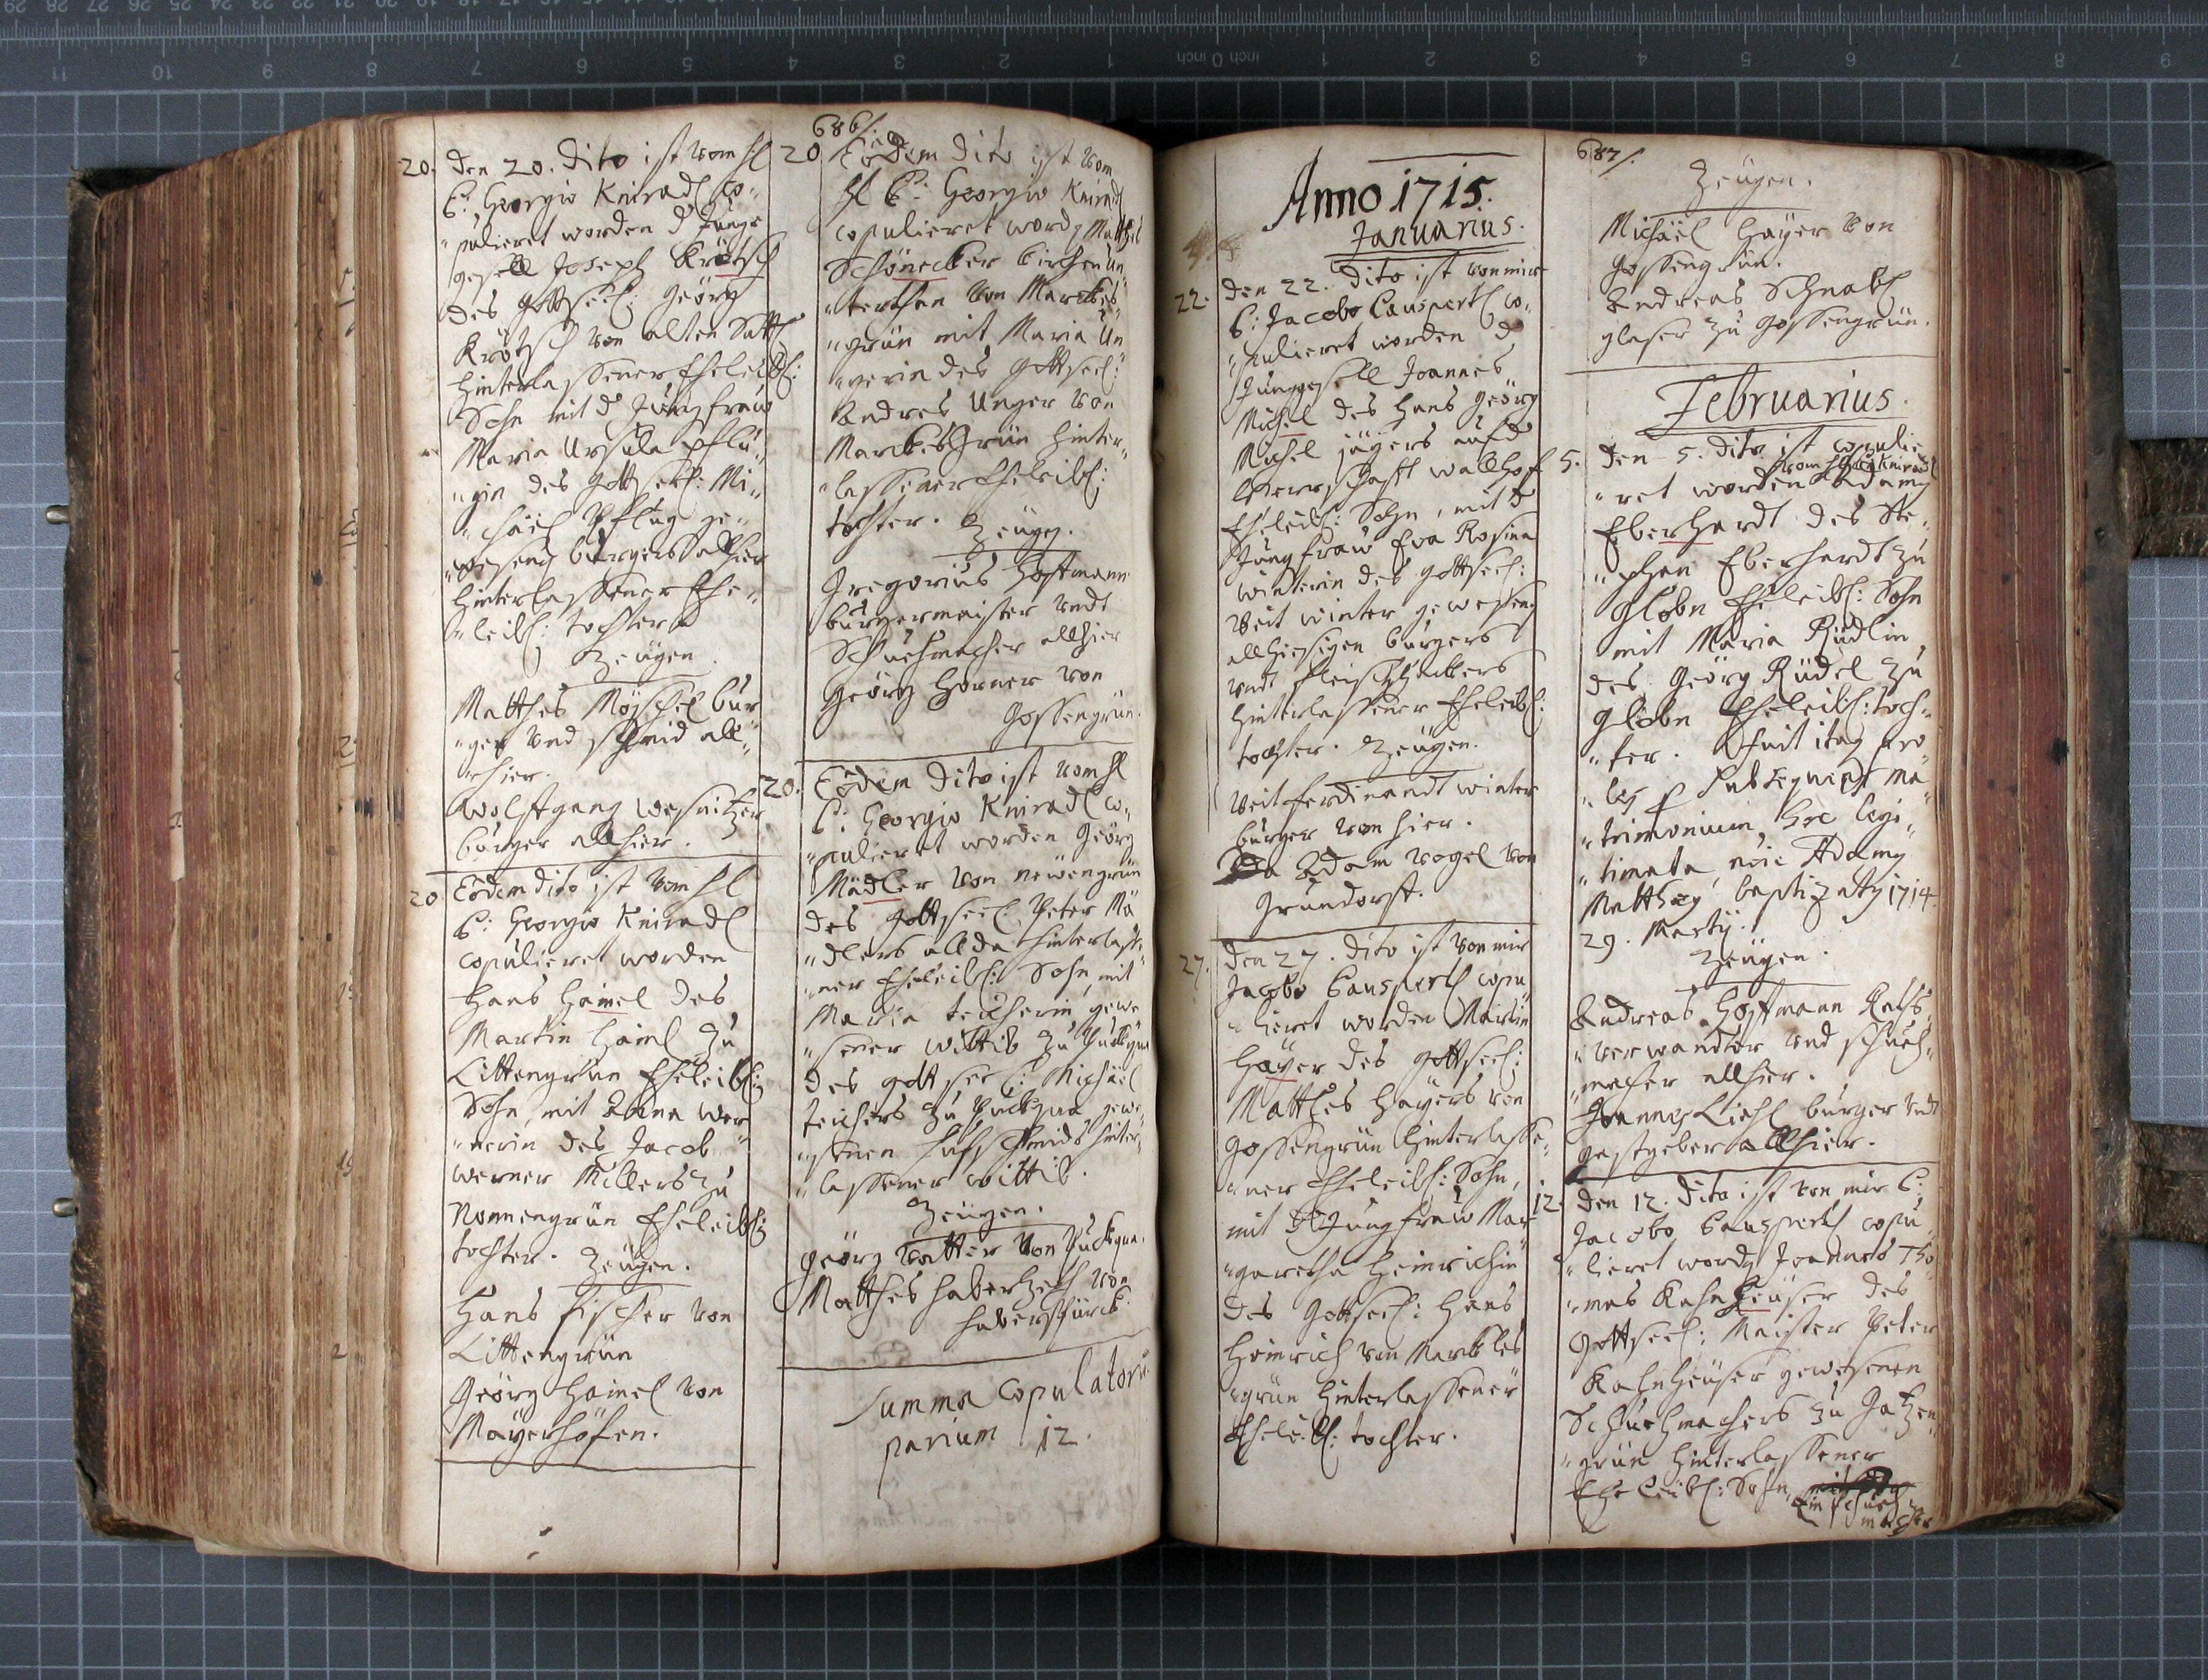 686/.
20. den 20. dito ist vom hl
C: Georgio Kniradl co-
"pulieret worden d Jung-
gesell Joseph Krötsch
des gottseel: Geörg
Krötsch von alten Sattl
hinterlassener Eheleibl:
Sohn mit d Jungfraw
Maria Ursula Pflü-
"gin des gottseel: Mi-
"chäel Pflug ge-
"wesenen burgers allhier
hinterlassener Ehe-
"leibl: tochter
Zeügen.
Matthes Möschel bur
"ger und schmid all-
"hier.
Wolffgang Wessnitzer
bürger allhier.
20 Eodem dito ist vom hl
C: Georgio Kniradl
copulieret worden
Hans Haimel des
Martin Haiml zu
Littengrün Eheleibl:
Sohn, mit Anna Wer
"nerin des Jacob
Werner Millers zu
Nonnengrün Eheleibl:
tochter. Zeügen.
Hans Fischer von
Littengrün
Geörg Haimel von
Mäyerhöfen.
20 Eodem dito ist vom
hl C: Georgio Kniradl
copulieret word Matthes
Schönecker
"terthan von Marckles
"grün mit Maria Un
"gerin des gottseel:
Andres Unger von
Marcklesgrün hinter-
"lassener Eheleibl:
tochter. Zeügen.
Gregorius Hoffmann
burgermaister undt
Schuehmacher allhier
Geörg Horner von
Gossengrün.
20. Eodem dito ist vom hl
C: Georgio Kniradl co-
"pulieret worden Geörg
Mädler von newengrün
des gottseel: Peter Mä
"dlers allda hinterlasse
"ner Eheleibl: Sohn, mit
Maria teücherin gewe
"sener wittib zu
des gottseel: Michäel
teüchers zu gewe
"senen huffschmids hinter-
"lassener wittib.
Zeügen.
Geörg Vatter von
Matthes Haberzetl von
Haberspürck.
Summa Copulatorũ
parium 12.
687/.
Anno 1715.
Januarius.
22. den 22. dito ist von mir
C: Jacobo Causpertl co-
"pulieret worden d
Junggesell Joannes
Michel des Hans Geörg
Michel jägers auf d
Herrschafft wallhof
Eheleibl: Sohn, mit d
Jungfraw Eva Rosina
Winterin des gottseel:
Veit Winter gewesene
allhiesigen burgers
undt fleischhackers
hinterlassener Eheleibl:
tochter. Zeügen.
Veit ferdinandt Winter
burger von hier.
Adam Vogel von
Grundorff.
27. den 27. dito ist von mir
Jacobo Causpertl copu
"lieret worden Martin
Häyer des gottseel:
Matthes Häyers von
Gossengrün hinterlasse-
"ner Eheleibl: Sohn,
mit d Jungfraw Mar
"garetha Heinrichin
des Gottseel: Hans
Heinrich von Marckles
"grün hinterlassener
Eheleibl: tochter.
Zeügen.
Michäel Häyer von
Gossengrün.
Andreas Schnabl
glaser zu Gossengrün.
Februarius.
5. den 5. dito ist copulie
vom hl Kniradl
"ret worden Adamg
Eberhardt des Ste-
"phan Eberhardt zu
Globn Eheleibl: Sohn
mit Maria Rüdlin
des Geörg Rüdel zu
Globn Eheleibl: toch-
"ter. fuit itaq pro
"les p subsequens ma
"trimonium hoc legi-
"timata, noie Adamg
Matthæg, baptizatg 1714.
29. Martij.
Zeügen.
Andreas Hoffmann Raths-
"verwandter und schueh-
"macher allhier.
Joannes Liehl burger undt
gastgeber allhier.
12. den 12. dito ist von mir C:
Jacobo Causpertl copu
"lieret word Joannes Tho
"mas Kahnheüser des
Gottseel: Maister Peter
Kahnheüser gewesenen
Schuehmachers zu Gatzen
"grün hinterlassener
Eheleibl: Sohn,
Ein schueh
macher